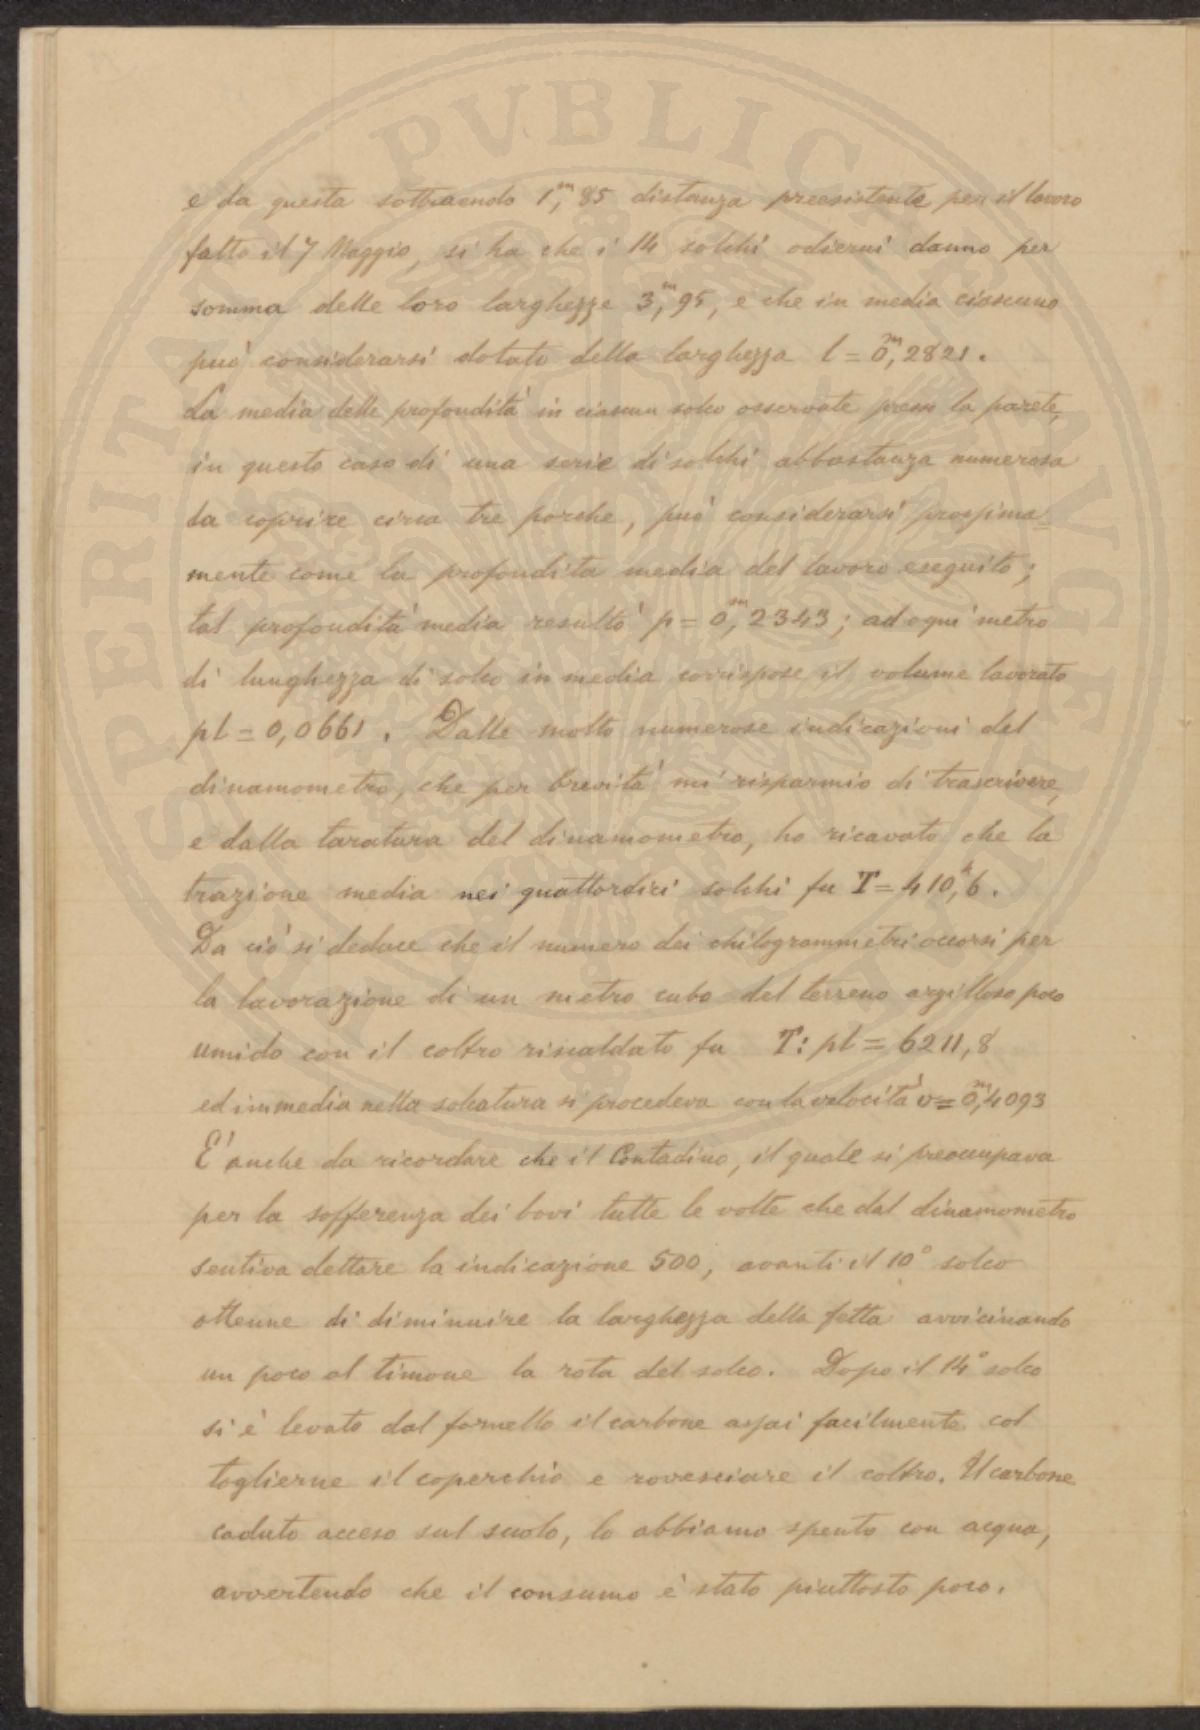 e da questa sottraendo 1,ᵐ85 distanza preesistente per il lavoro
fatto il 7 Maggio, si ha che i 14 solchi odierni danno per
somma delle loro larghezze 3,ᵐ95, e che in media ciascuno
può considerarsi dotato della larghezza l = 0,ᵐ2821.
La media delle profondità in ciascun solco osservate presso la parete,
in questo caso di una serie di solchi abbastanza numerosa
da coprire circa tre porche, può considerarsi prossima=
mente come la profondita media del lavoro eseguito;
tal profondità media resultò p = 0,ᵐ2343; ad ogni metro
di lunghezza di solco in media corrispose il volume lavorato
pl = 0,0661. Dalle molto numerose indicazioni del
dinamometro, che per brevità mi risparmio di trascrivere,
e dalla taratura del dinamometro, ho ricavato che la
trazione media nei quattordici solchi fu T = 410,ᵏ6.
Da ciò si deduce che il numero dei chilogrammetri occorsi per
la lavorazione di un metro cubo del terreno argilloso poco
umido con il coltro riscaldato fu T: pl = 6211,8
ed in media nella solcatura si procedeva con la velocità v = 0,ᵐ4093
E' anche da ricordare che il Contadino, il quale si preoccupava
per la sofferenza dei bovi tutte le volte che dal dinamometro
sentiva dettare la indicazione 500, avanti il 10° solco
ottenne di diminuire la larghezza della fetta avvicinando
un poco al timone la rota del solco. Dopo il 14° solco
si è levato dal fornello il carbone assai facilmente col
toglierne il coperchio e rovesciare il coltro. Il carbone
caduto acceso sul suolo, lo abbiamo spento con acqua,
avvertendo che il consumo è stato piuttosto poco.